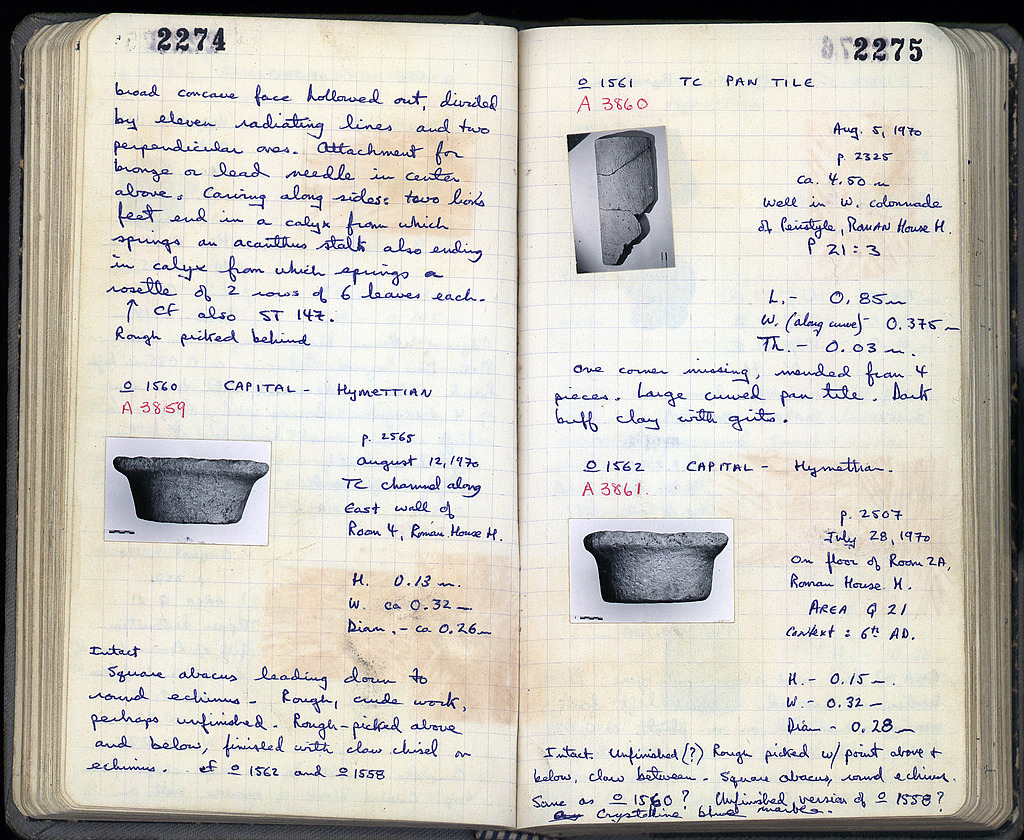 2274
broad concave face hollowed out, divided
by eleven radiating lines and two
perpendicular ones. Attachment for
bronze or lead needle in center
above. Carving along sides: two lion's
feet end in a calyx from which
springs an acanthus stalk also ending
in calyx from which springs a
rosette of 2 rows of 6 leaves each.
↑ Cf also ST 147.
Rough picked behind
O 1560 CAPITAL - HYMETTIAN
A 3859
p. 2565
August 12, 1970
TC channel along
East wall of
Room 4, Roman House H.
H. 0.13 m.
W. ca 0.32 m
Diam. - ca 0.26 m
Intact
Square abacus leading down to
round echinus - Rough, crude work,
perhaps unfinished. Rough-picked above
and below, finished with claw chisel on
echinus. cf O 1562 and O 1558
2275
O 1561 TC PAN TILE
A 3860
Aug. 5, 1970
p. 2325
ca. 4.50 m
Well in W. colonnade
of Peristyle, Roman House H.
P 21:3
L. - 0.85 m
W. (along curve) - 0.375 m
Th. - 0.03 m.
One corner missing, mended from 4
pieces. Large curved pan tile. Dark
buff clay with grits.
O 1562 CAPITAL - Hymettian.
A 3861.
p. 2507
July 28, 1970
On floor of Room 2A,
Roman House H.
AREA Q 21
Context: 6th AD.
H. - 0.15 m.
W. - 0.32 m
Diam - 0.28 m
Intact. Unfinished (?) Rough picked w/ point above +
below, claw between. Square abacus, round echinus.
Same as O 1560? Unfinished version of O 1558?
Crystalline blue marble.